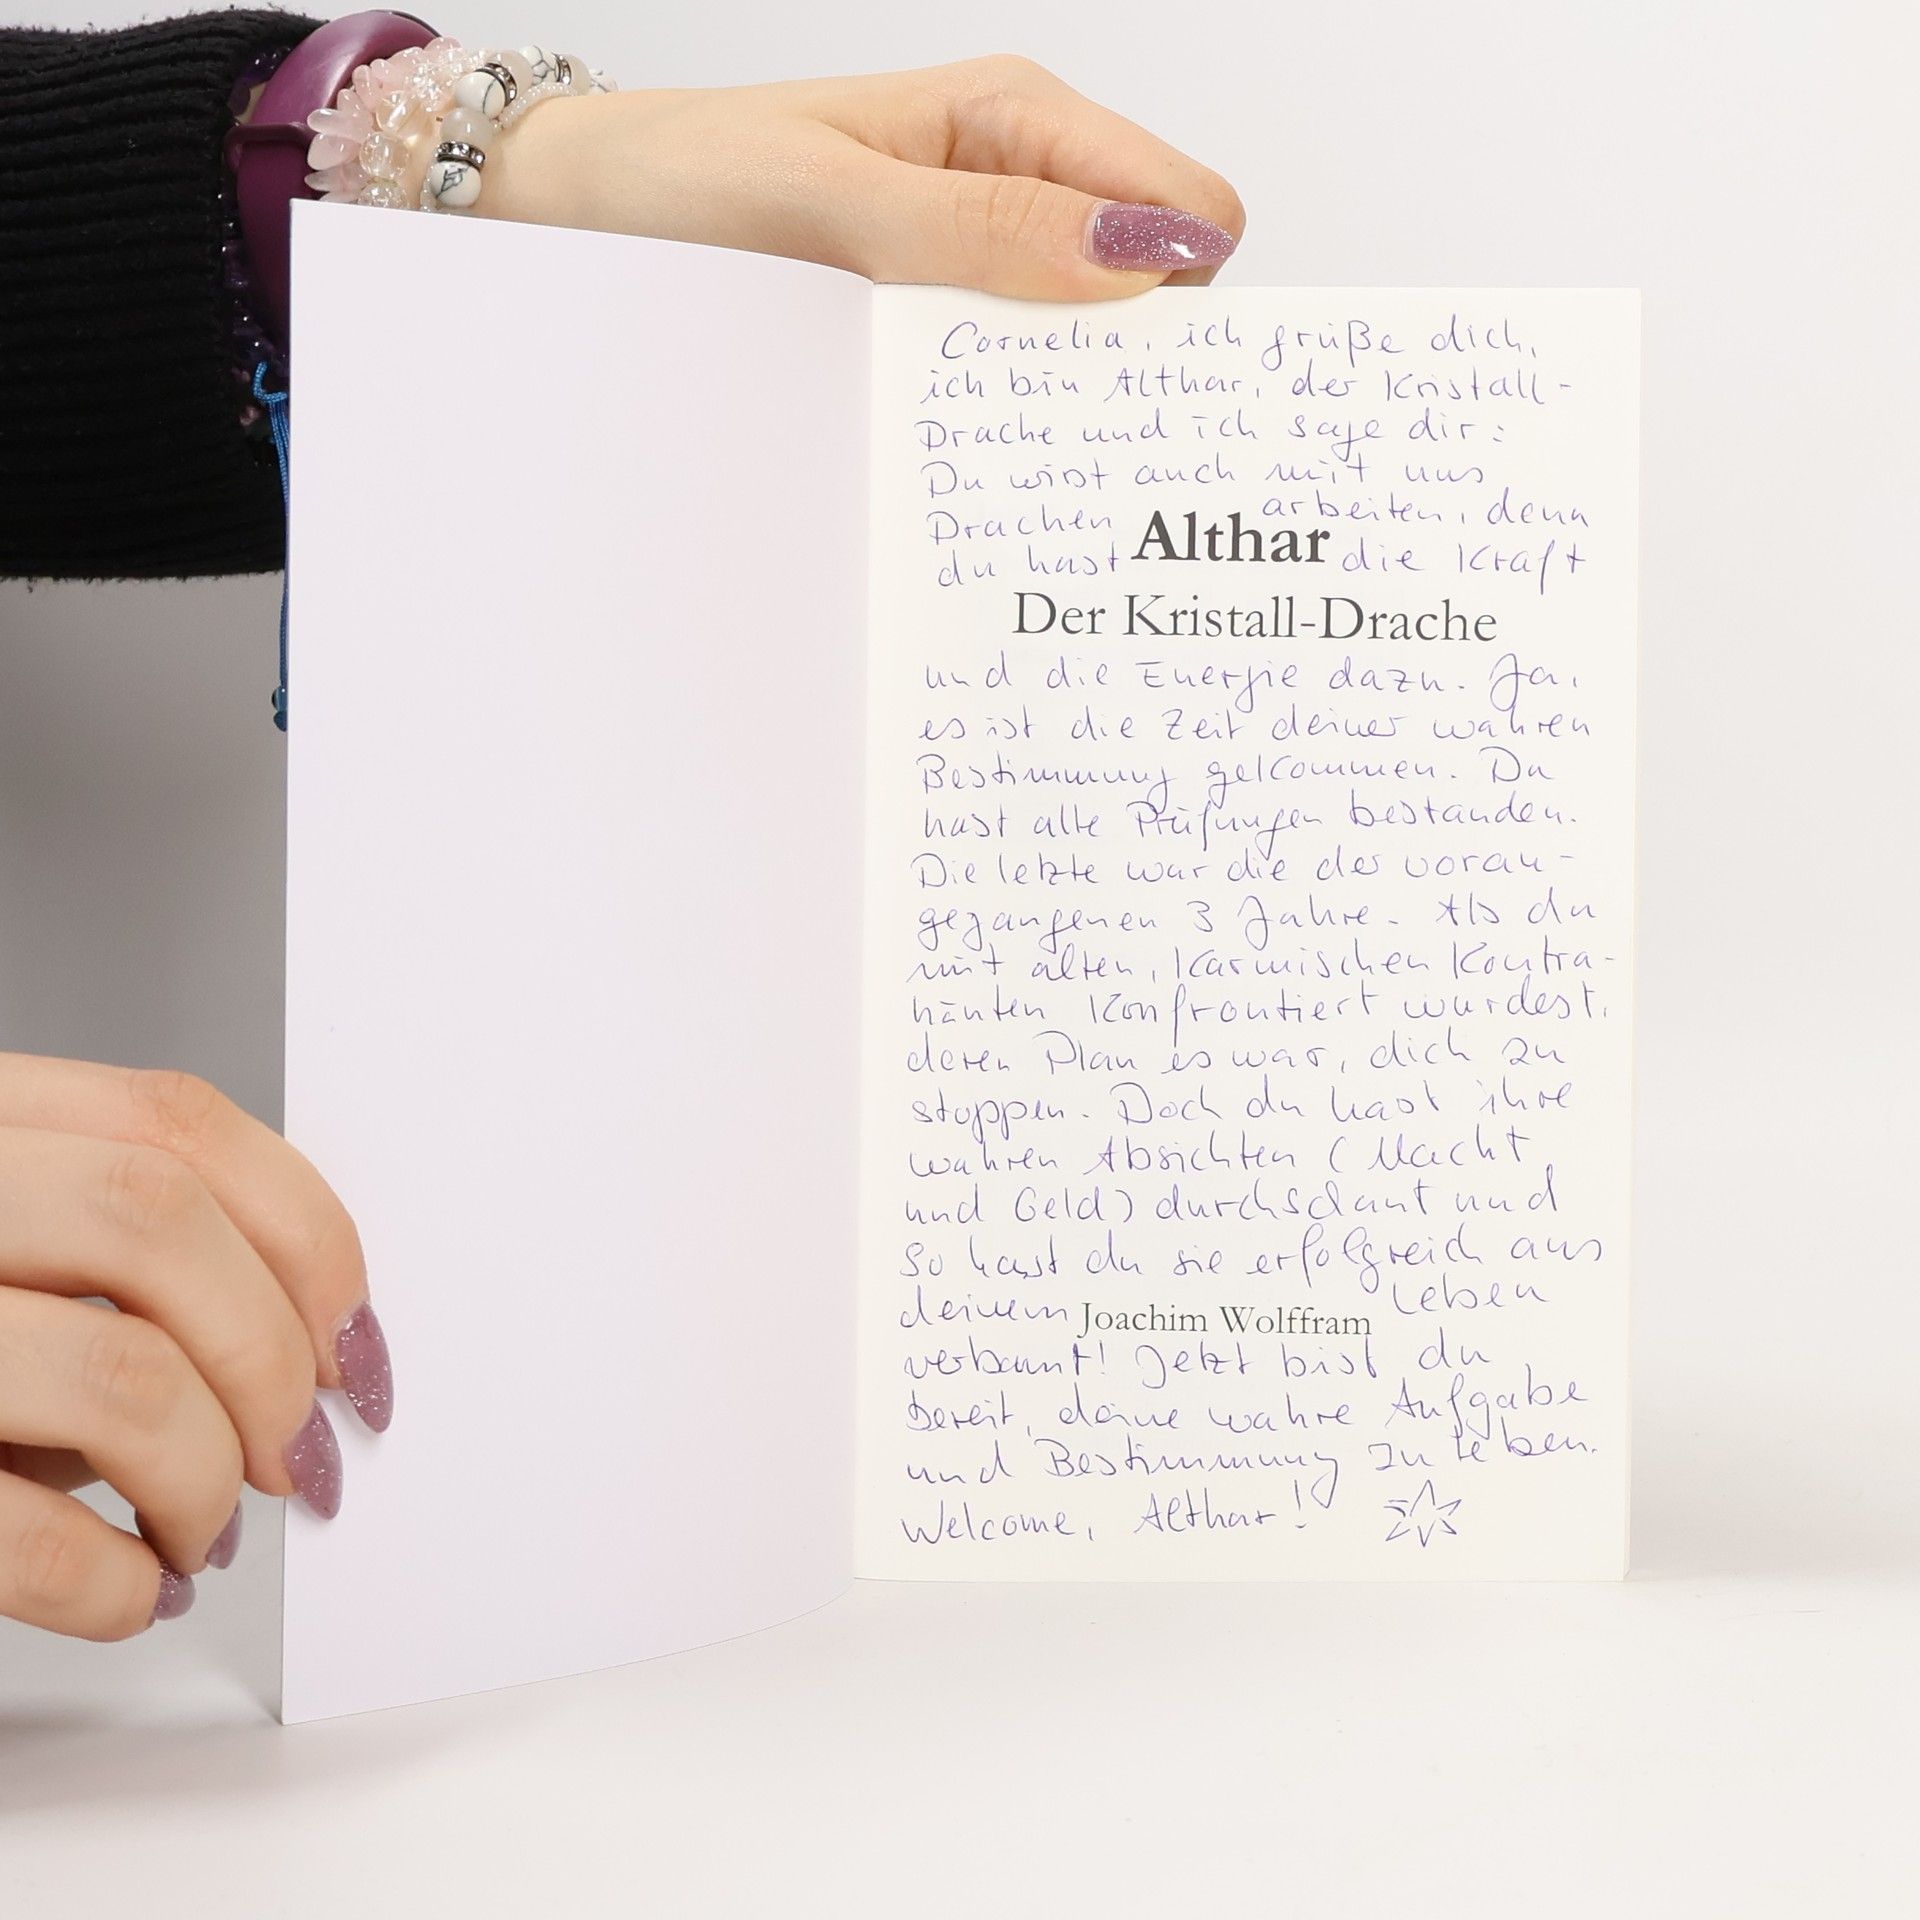 Cornelia, ich grüße dich,
ich bin Althar, der Kristall-
Drache und ich sage dir:
Du wirst auch mit uns
Drachen arbeiten, denn
du hast Althar die Kraft
Der Kristall-Drache
und die Energie dazu. Ja,
es ist die Zeit deiner wahren
Bestimmung gekommen. Du
hast alle Prüfungen bestanden.
Die letzte war die der voran-
gegangenen 3 Jahre. Als du
mit alten, karmischen Kontra-
hänten konfrontiert wurdest,
deren Plan es war, dich zu
stoppen. Doch du hast ihre
wahren Absichten (Macht
und Geld) durchschaut und
so hast du sie erfolgreich aus
deinem Joachim Wolffram Leben
verbannt! Jetzt bist du
bereit, deine wahre Aufgabe
und Bestimmung zu leben.
Welcome, Althar!